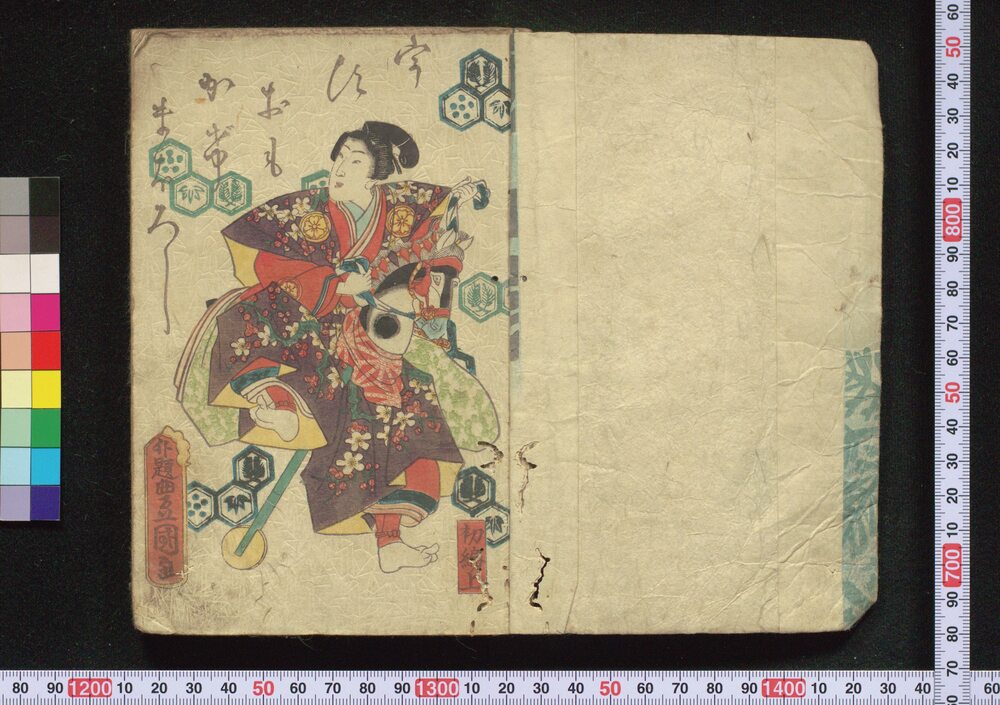 宇
す
おも
かげ
まぼろし
外題豊国画
初編上
60 50 40 30 20 10 800 90 80 70 60 50 40 30 20 10 700 90 80 70
80 90 1200 10 20 30 40 50 60 70 80 90 1300 10 20 30 40 50 60 70 80 90 1400 10 20 30 40 60